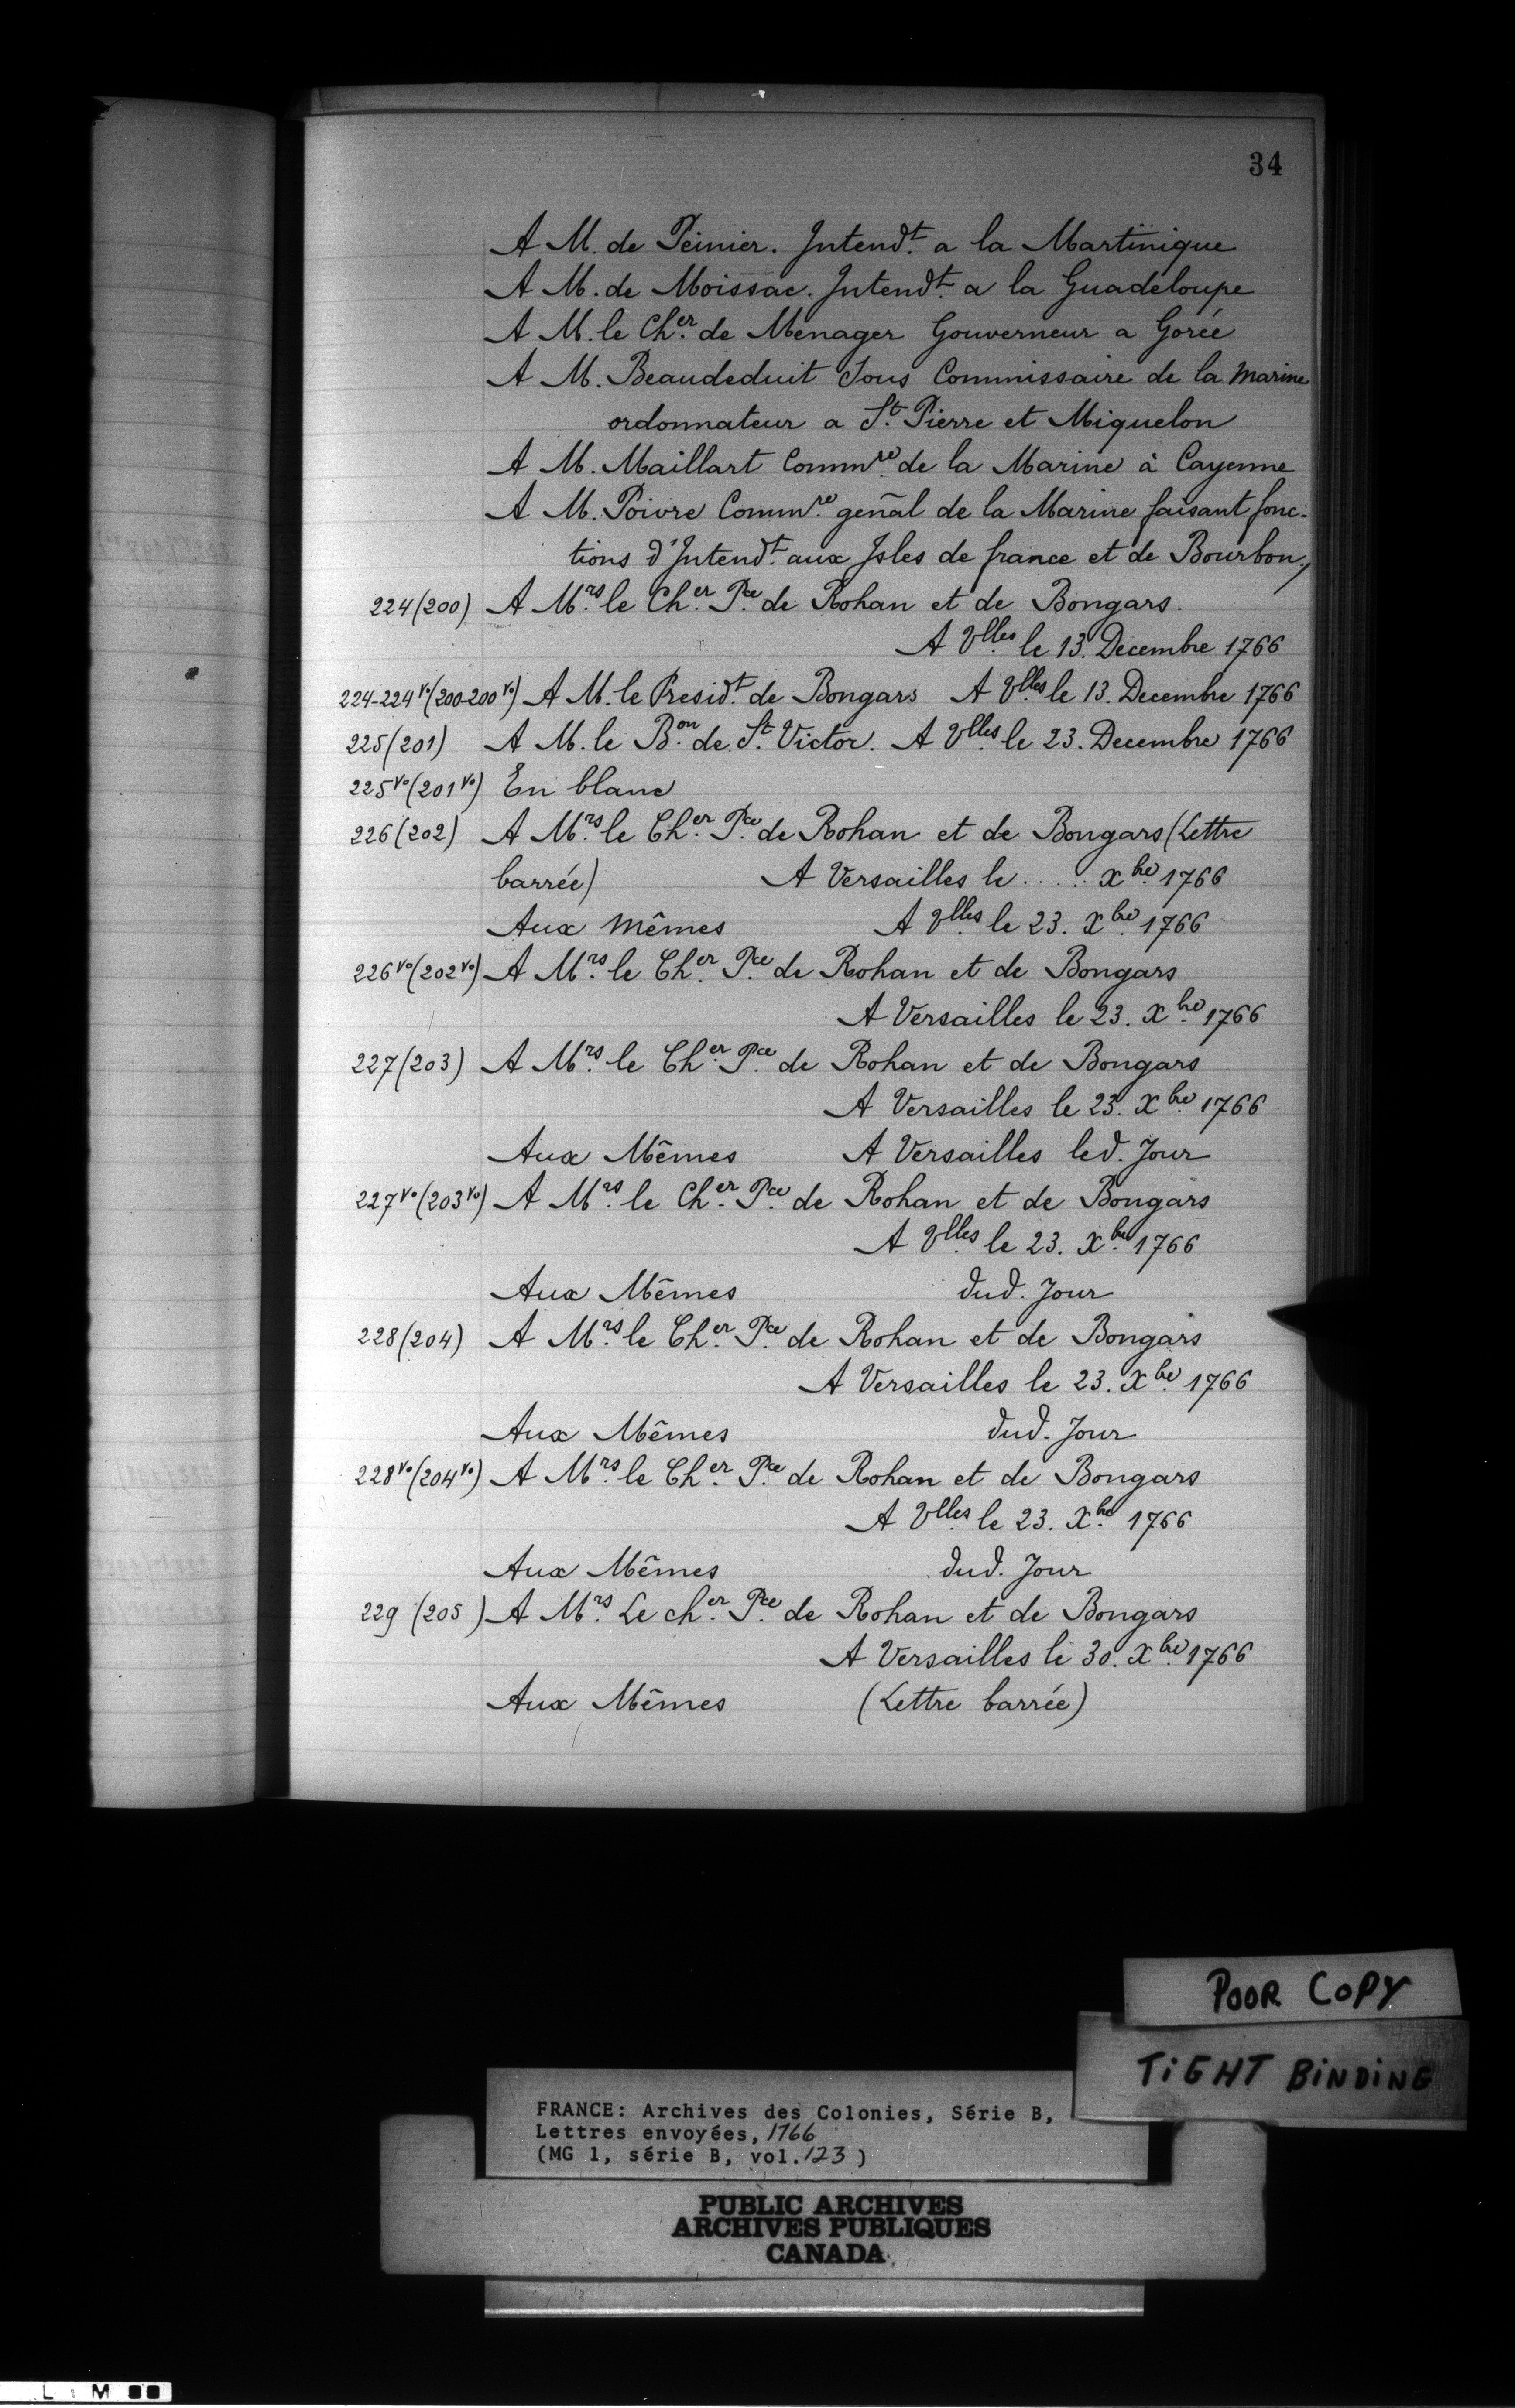 34
A M. de Peinier. Intend.t a la Martinique
A M. de Moissac. Intend.t a la Guadeloupe
A M. le Ch.er de Menager Gouverneur a Gorée
A M. Beaudeduit Sous Commissaire de la Marine
ordonnateur a S.t Pierre et Miquelon
A M. Maillart Comm.re de la Marine à Cayenne
A M. Poivre Comm.re geñal de la Marine faisant fonc-
tions d'Intend.t aux Isles de france et de Bourbon./
224(200) A M.rs le Ch.er P.ce de Rohan et de Bongars.
A V.lles le 13. Decembre 1766
224-224vo(200-200vo) A M. le Presid.t de Bongars A V.lles le 13. Decembre 1766
225(201) A M. le B.on de S.t Victor. A V.lles le 23. Decembre 1766
225vo(201vo) En blanc
226(202) A M.rs le Ch.er P.ce de Rohan et de Bongars (Lettre
barrée) A Versailles le ..... X.bre 1766
Aux mêmes A V.lles le 23. X.bre 1766
226vo(202vo) A M.rs le Ch.er P.ce de Rohan et de Bongars
A Versailles le 23. X.bre 1766
227(203) A M.rs le Ch.er P.ce de Rohan et de Bongars
A Versailles le 23. X.bre 1766
Aux Mêmes A Versailles led. Jour
227vo(203vo) A M.rs le Ch.er P.ce de Rohan et de Bongars
A V.lles le 23. X.bre 1766
Aux Mêmes dud. Jour
228(204) A M.rs le Ch.er P.ce de Rohan et de Bongars
A Versailles le 23. X.bre 1766
Aux Mêmes dud. Jour
228vo(204vo) A M.rs le Ch.er P.ce de Rohan et de Bongars
A V.lles le 23. X.bre 1766
Aux Mêmes dud. Jour
229 (205) A M.rs Le ch.er P.ce de Rohan et de Bongars
A Versailles le 30. X.bre 1766
Aux Mêmes (Lettre barrée)
POOR COPY
TIGHT BINDING
FRANCE: Archives des Colonies, Série B,
Lettres envoyées, 1766
(MG 1, série B, vol. 123 )
PUBLIC ARCHIVES
ARCHIVES PUBLIQUES
CANADA
L M